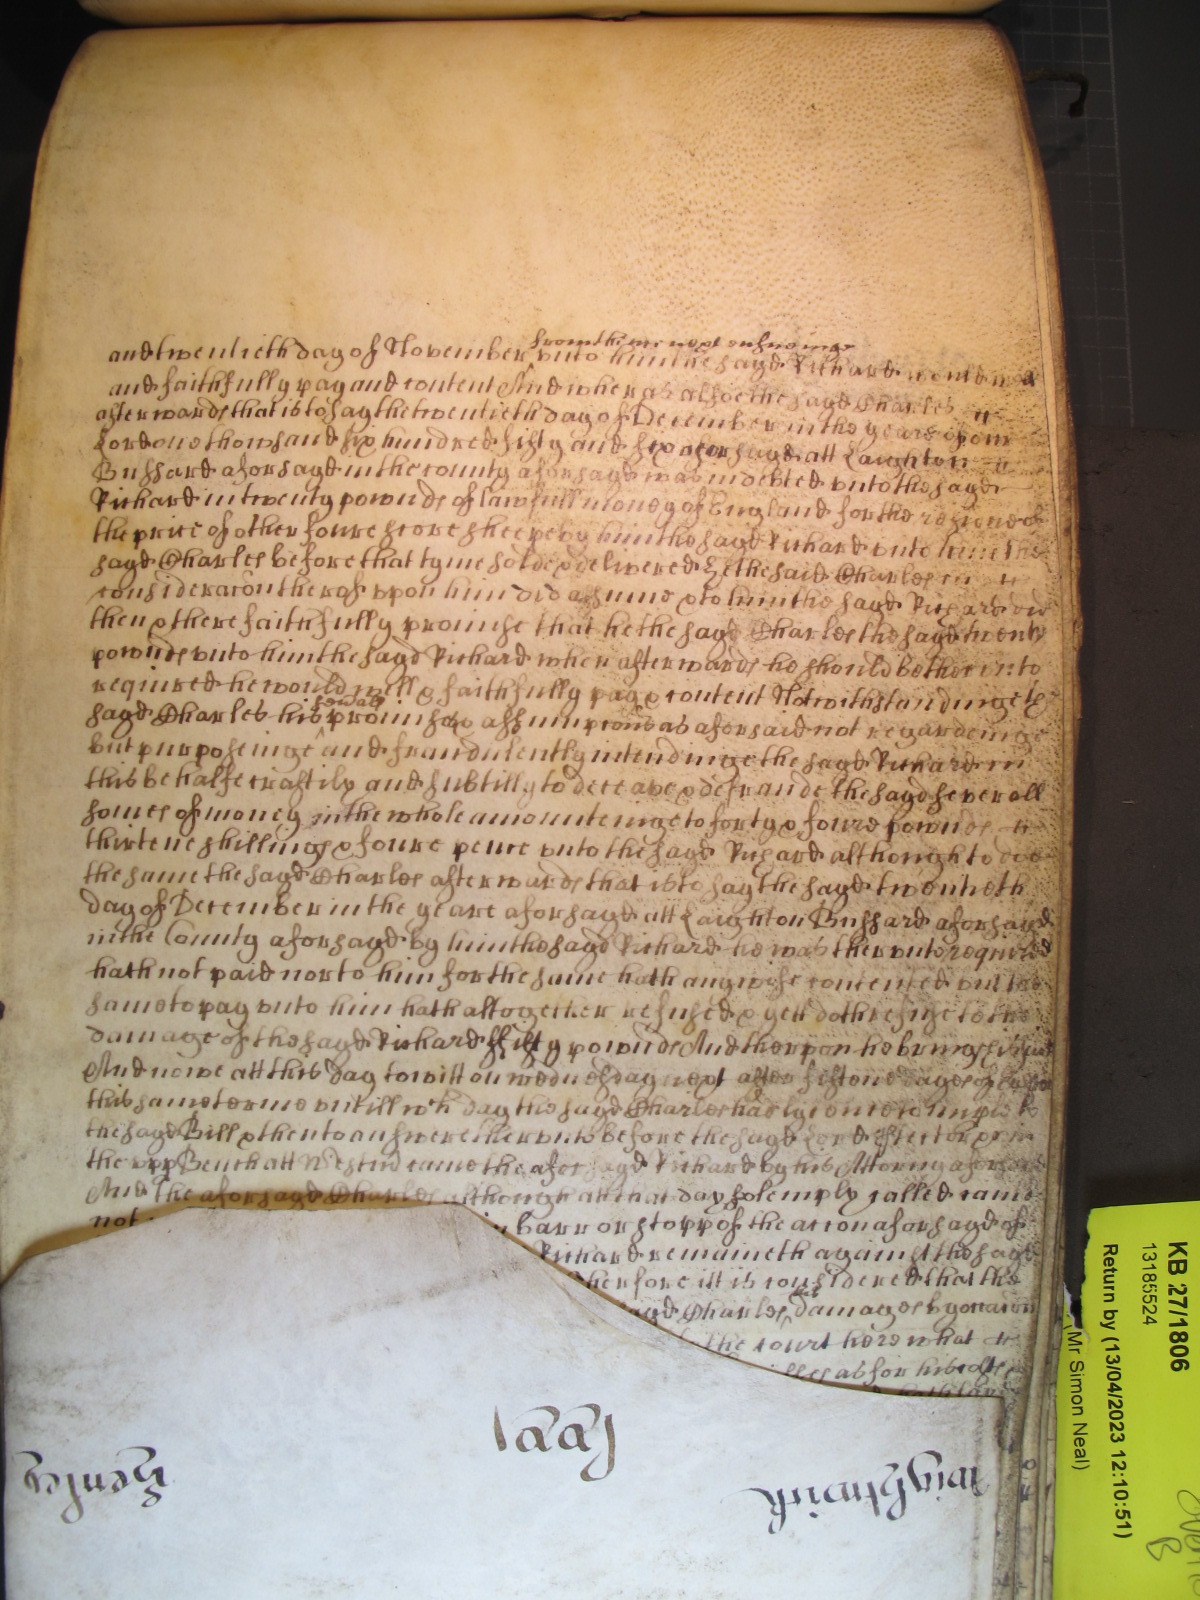 and twentieth day of November from thence next ensueinge vnto him the sayd Richard would well
and faithfully pay and content And wheras alsoe the sayd Charles
afterwards that is to say the twentieth day of December in the yeare of our
Lord one thowsand six hundred fifty and six aforsayd att Laighton
Bussard aforsayd in the county aforsayd was indebted vnto the sayd
Richard in twenty pownds of lawfull money of England for the residue of
the price of other foure score sheepe by him the sayd Richard vnto him the
sayd Charles before that tyme sold & delivered he the said Charles in
consideracon therof vpon him did assume & to him the sayd Richard did
then & there faithfully promise that he the sayd Charles the sayd twenty
pownds vnto him the sayd Richard when afterwards he should be therunto
required he would well & faithfully pay & content Notwithstandinge the
sayd Charles his sevall promises & assumpcons as aforsaid not regardeinge
but purposeinge and fraudulently intendinge the sayd Richard in
this behalfe craftily and subtilly to deceave & defraude the sayd severall
somes of money in the whole amounteinge to forty & foure pownds
thirtene shillings & foure pence vnto the sayd Richard although to doe
the same the sayd Charles afterwards that is to say the sayd twentieth
day of December in the yeare aforsayd att Laighton Bussard aforsayd
in the County aforsayd by him the sayd Richard he was thervnto required
hath not paid nor to him for the same hath any wise contented but the
same to pay vnto him hath altogether refused & yett doth refuse to the
damage of the sayd Richard ffifty pownds And therupon he brings his suit
And nowe att this day to witt on wednesday next after fiftene dayes of Easter
this same terme vntill wch day the sayd Charles had lycence to imple to
the sayd Bill & then to answere thervnto before the sayd Lord Ptector
the vpp Bench att Westmr came the aforsayd Richard by his Attorny aforsayd
And the aforsayd Charles although att that day solemply called came
not in barr or stopp of the accon aforsayd of
Richard remaineth against the sayd
Therfore itt is considered that the
sayd Charles his damages by occasion
the court here what
as for his costs
Henley
Wightwick